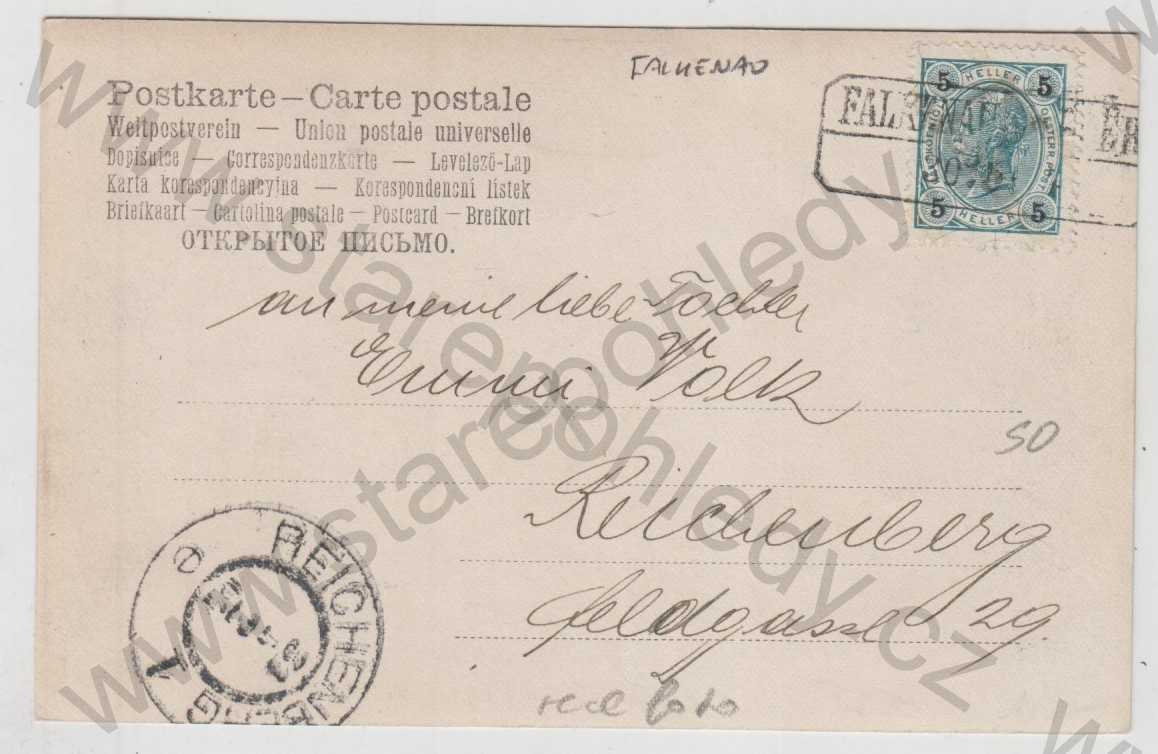 FALKENAU
Postkarte – Carte postale
Weltpostverein — Union postale universelle
Dopisnice — Correspondenzkarte — Levelező-Lap
Karta korespondencyjna — Korespondencni listek
Briefkaart – Cartolina postale – Postcard – Brefkort
ОТКРЫТОЕ ПИСЬМО.
5 HELLER 5
5 HELLER 5
FALKENAU
an meine liebe Tochter
Emmi Volk
50
Reichenberg
Feldgasse 29.
REICHENBERG 1
www.starepohledy.cz
www.starepohledy.cz